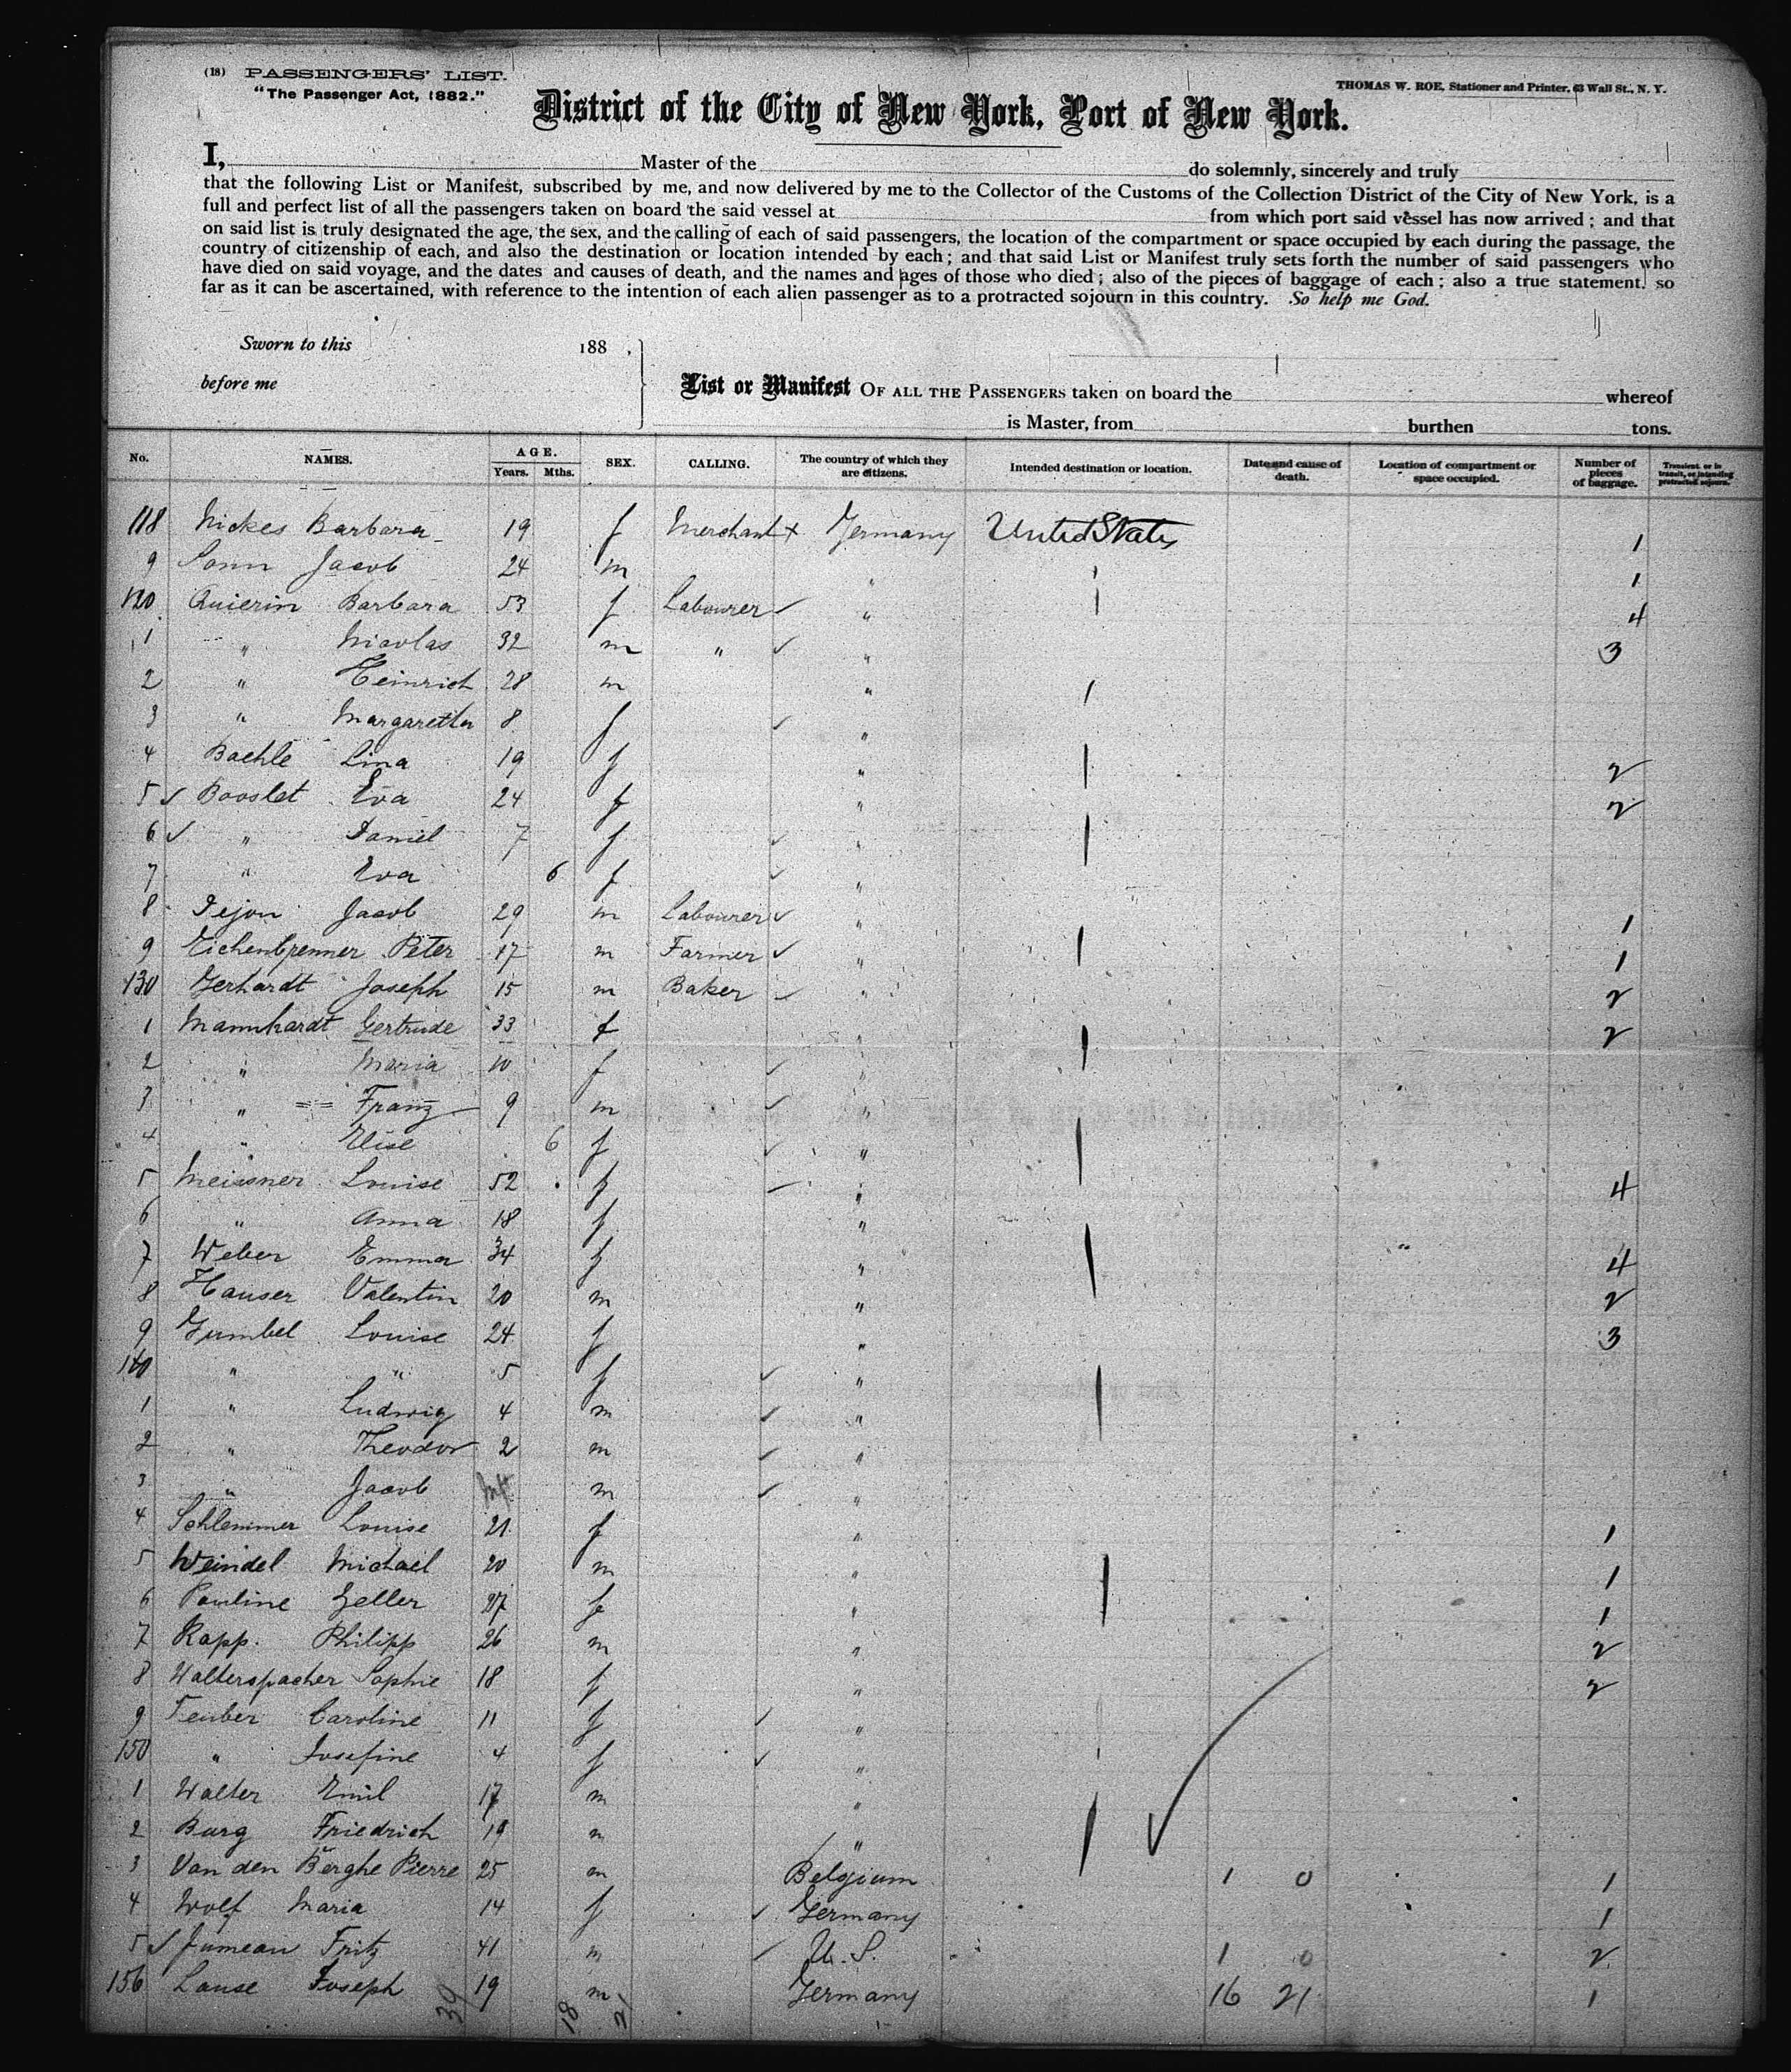 (18) PASSENGERS' LIST.
"The Passenger Act, 1882."
THOMAS W. ROE, Stationer and Printer, 63 Wall St., N. Y.
District of the City of New York, Port of New York.
I, Master of the do solemnly, sincerely and truly
that the following List or Manifest, subscribed by me, and now delivered by me to the Collector of the Customs of the Collection District of the City of New York, is a
full and perfect list of all the passengers taken on board the said vessel at from which port said vessel has now arrived; and that
on said list is truly designated the age, the sex, and the calling of each of said passengers, the location of the compartment or space occupied by each during the passage, the
country of citizenship of each, and also the destination or location intended by each; and that said List or Manifest truly sets forth the number of said passengers who
have died on said voyage, and the dates and causes of death, and the names and ages of those who died; also of the pieces of baggage of each; also a true statement, so
far as it can be ascertained, with reference to the intention of each alien passenger as to a protracted sojourn in this country. So help me God.
Sworn to this 188 .
before me
List or Manifest OF ALL THE PASSENGERS taken on board the whereof
is Master, from burthen tons.
No. NAMES. AGE. Years. Mths. SEX. CALLING. The country of which they are citizens. Intended destination or location. Date and cause of death. Location of compartment or space occupied. Number of pieces of baggage. Transient or in transit, or intending protracted sojourn.
118 Nickes Barbara 19 f Merchant Germany United States 1
9 Sonn Jacob 24 m " 1
120 Quierin Barbara 53 f Labourer " 4
1 " Nicolas 32 m " " 3
2 " Heinrich 28 m "
3 " Margaretha 8 f "
4 Baehle Lina 19 f " 2
5 Booslet Eva 24 f " 2
6 " Daniel 7 f "
7 " Eva 6 f "
8 Dejon Jacob 29 m Labourer " 1
9 Eichenbrenner Peter 17 m Farmer " 1
130 Gerhardt Joseph 15 m Baker " 2
1 Mannhardt Gertrude 33 f " 2
2 " Maria 10 f "
3 " Franz 9 m "
4 " Elise 6 f "
5 Meissner Louise 52 f " 4
6 " Anna 18 f "
7 Weber Emma 34 f " 4
8 Hauser Valentin 20 m " 2
9 Gumbel Louise 24 f " 3
140 " " 5 f "
1 " Ludwig 4 m "
2 " Theodor 2 m "
3 " Jacob Inft m "
4 Schlemmer Louise 21 f " 1
5 Weindel Michael 20 m " 1
6 Pauline Zeller 27 f " 1
7 Rapp. Philipp 26 m " 2
8 Walterspacher Sophie 18 f " 2
9 Teuber Caroline 11 f "
150 " Josefine 4 f "
1 Walter Emil 17 m "
2 Burg Friedrich 19 m "
3 Van den Berghe Pierre 25 m Belgium 1 0 1
4 Wolf Maria 14 f Germany 1
5 Jumeau Fritz 41 m U. S. 1 0 2
156 Lause Joseph 19 m Germany 16 21 1
39 18 21